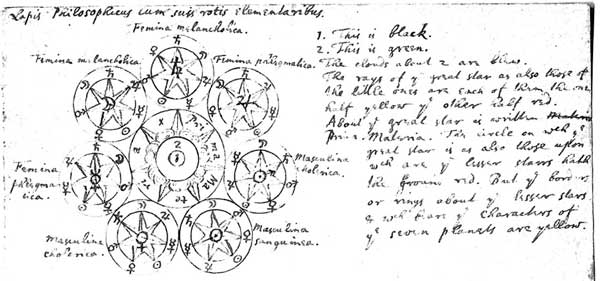 Lapis Philosophicus cum suis rotis elementaribus.
Femina melancholica.
Femina melancholica.
Femina phlegmatica.
Femina phlegmatica.
Masculina cholerica.
Masculina cholerica.
Masculina sanguinea.
Prima Materia
1
2
1. This is black.
2. This is green.
The clouds about 2 are blew.
The rays of yͤ great star as also those of
the little ones are each of them the one
half yellow yͤ other half red.
About yͤ great star is written
Prima Materia. The circle on wch yͤ
great star is as also those upon
wch are yͤ lesser starrs hath
the ground red. But yͤ borders
or rings about yͤ lesser stars
& wch bear yͤ characters of
yͤ seven planets are yellow.